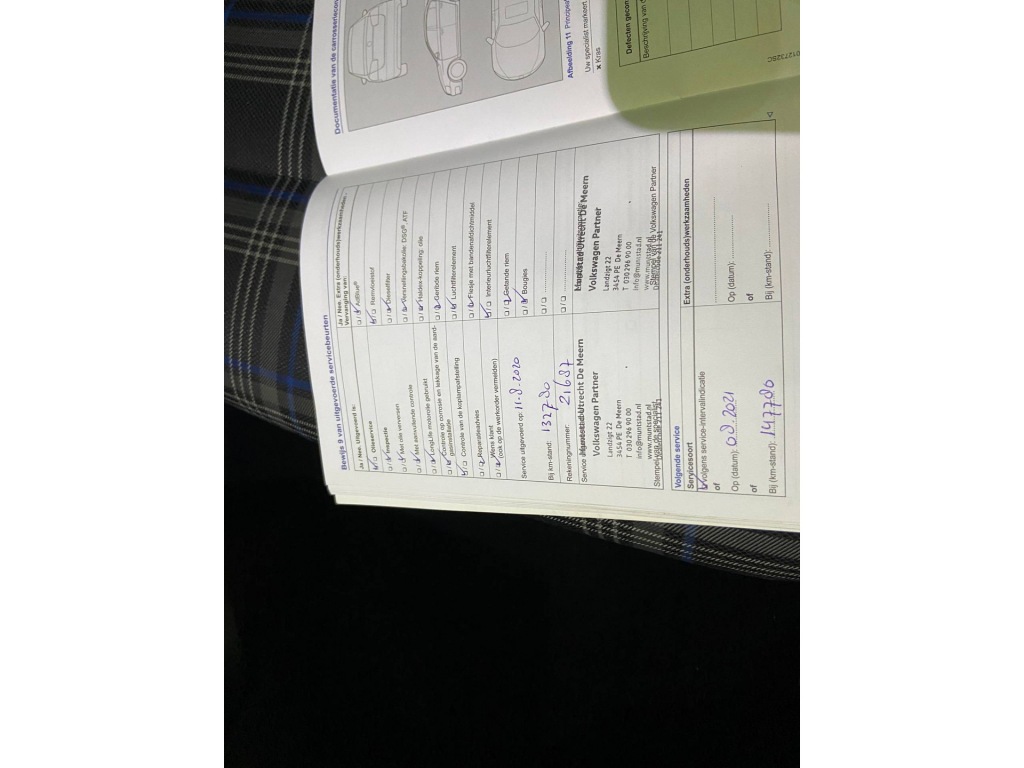 Bewijs 9 van uitgevoerde servicebeurten
Ja / Nee Uitgevoerd is:
Olieservice
Inspectie
Met olie verversen
Met aanvullende controle
LongLife motorolie gebruikt
Controle op corrosie en lekkage van de aard-
gasinstallatie
Controle van de koplampafstelling
Reparatieadvies
Wens klant
(ook op de werkorder vermelden)
Service uitgevoerd op: 11.8.2020
Bij km-stand: 132780
Rekeningnummer: 21687
Muntstad Utrecht De Meern
Volkswagen Partner
Landzigt 22
3454 PE De Meern
T 030 296 90 00
info@muntstad.nl
www.muntstad.nl
Ja / Nee Extra (onderhouds)werkzaamheden:
Vervanging van:
AdBlue®
Remvloeistof
Dieselfilter
Versnellingsbakolie: DSG®, ATF
Haldex-koppeling: olie
Geribde riem
Luchtfilterelement
Flesje met bandenafdichtmiddel
Interieurluchtfilterelement
Getande riem
Bougies
Muntstad Utrecht De Meern
Volkswagen Partner
Landzigt 22
3454 PE De Meern
T 030 296 90 00
info@muntstad.nl
www.muntstad.nl
Stempel van de Volkswagen Partner
Volgende service
Servicesoort
Volgens service-intervalindicatie
of
Op (datum): 08.2021
of
Bij (km-stand): 147780
Extra (onderhouds)werkzaamheden
Op (datum):
of
Bij (km-stand):
Documentatie van de carrosserie
Afbeelding 11
Uw specialist markeert
× Kras
Defecten
Beschrijving van